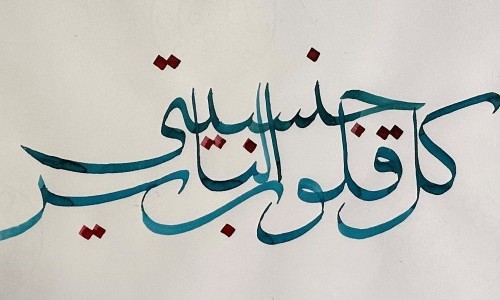 كل قلوب الناس جنسيتي